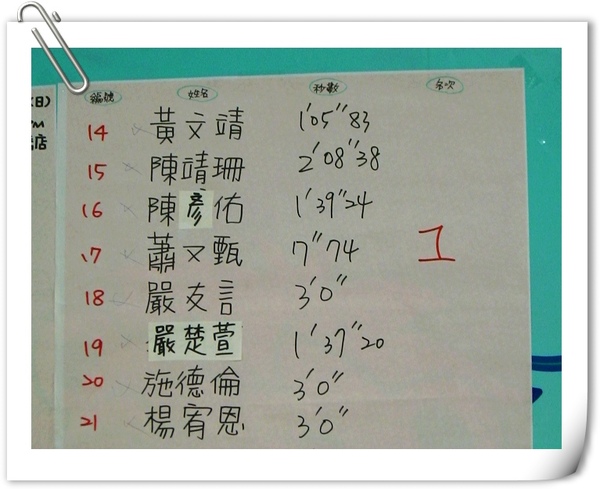 編號 姓名 秒數 名次
14 黃文靖 1'05"83
15 陳靖珊 2'08"38
16 陳彥佑 1'39"24
17 蕭又甄 7"74 1
18 嚴友言 3'0"
19 嚴楚萱 1'37"20
20 施德倫 3'0"
21 楊宥恩 3'0"
(日)
店